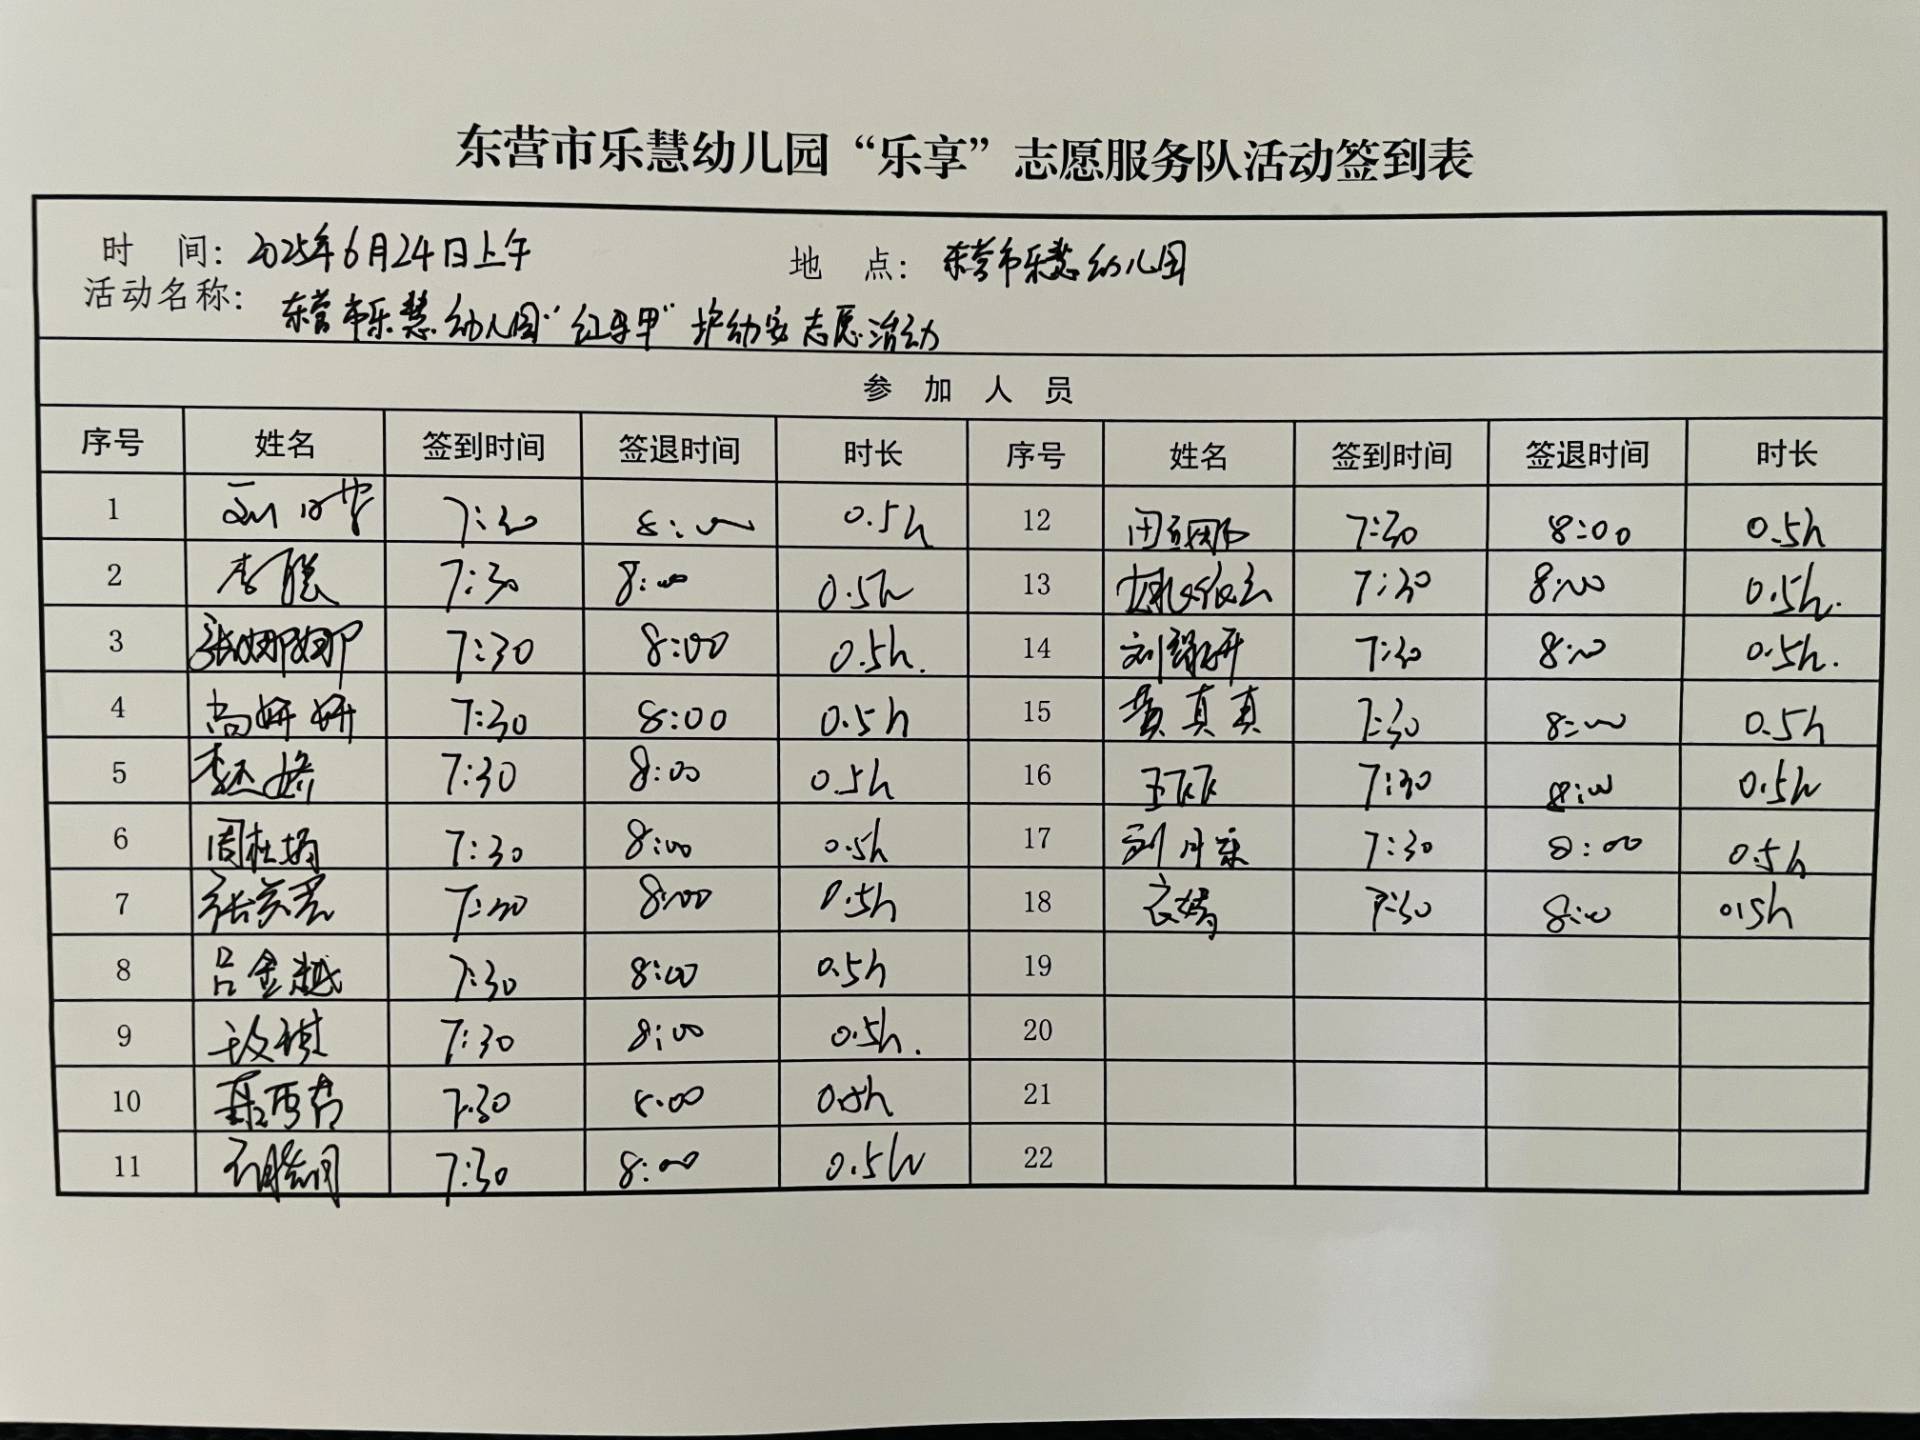 东营市乐慧幼儿园“乐享”志愿服务队活动签到表
时 间：2025年6月24日上午 地 点：东营市乐慧幼儿园
活动名称：东营市乐慧幼儿园“红马甲”护幼安志愿活动
参 加 人 员
序号 姓名 签到时间 签退时间 时长 序号 姓名 签到时间 签退时间 时长
1 7:30 8:00 0.5h 12 7:30 8:00 0.5h
2 李聪 7:30 8:00 0.5h 13 7:30 8:00 0.5h.
3 张娜娜 7:30 8:00 0.5h. 14 7:30 8:00 0.5h.
4 尚妍妍 7:30 8:00 0.5h 15 黄真真 7:30 8:00 0.5h
5 7:30 8:00 0.5h 16 王飞飞 7:30 8:00 0.5h
6 周桂娟 7:30 8:00 0.5h 17 7:30 8:00 0.5h
7 7:30 8:00 0.5h 18 7:30 8:00 0.5h
8 吕金越 7:30 8:00 0.5h 19
9 7:30 8:00 0.5h. 20
10 7:30 8:00 0.5h 21
11 7:30 8:00 0.5h 22